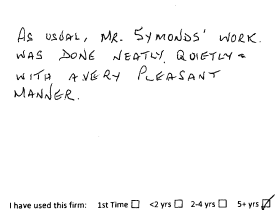 AS USUAL, MR. SYMONDS' WORK.
WAS DONE NEATLY, QUIETLY -
WITH A VERY PLEASANT
MANNER.
I have used this firm: 1st Time ☐ <2 yrs ☐ 2-4 yrs ☐ 5+ yrs ☑